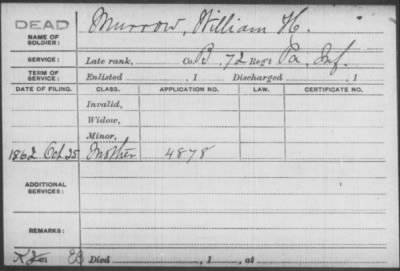 DEAD
NAME OF SOLDIER: Murrow, William H.
SERVICE: Late rank, Co. B, 72 Reg't Pa. Inf.
TERM OF SERVICE: Enlisted , 1 Discharged , 1
DATE OF FILING. CLASS. APPLICATION NO. LAW. CERTIFICATE NO.
Invalid,
Widow,
Minor,
1862 Oct. 25 Mother 4878
ADDITIONAL SERVICES:
REMARKS:
Died , 1 , at